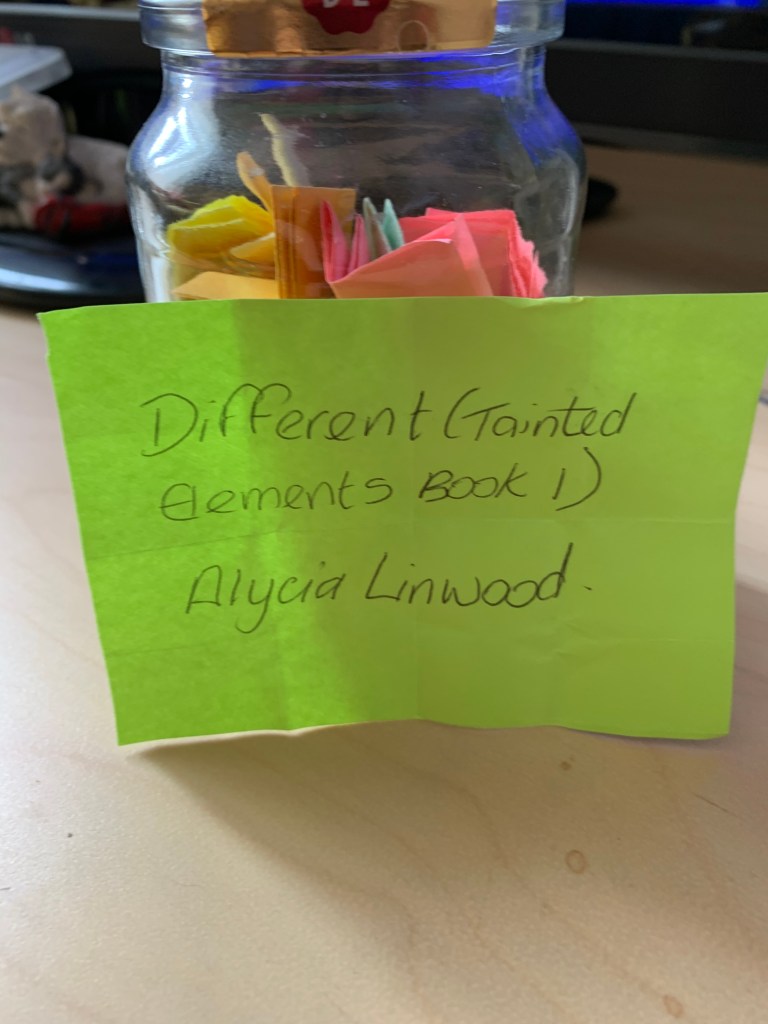 Different (Tainted
Elements Book 1)
Alycia Linwood.